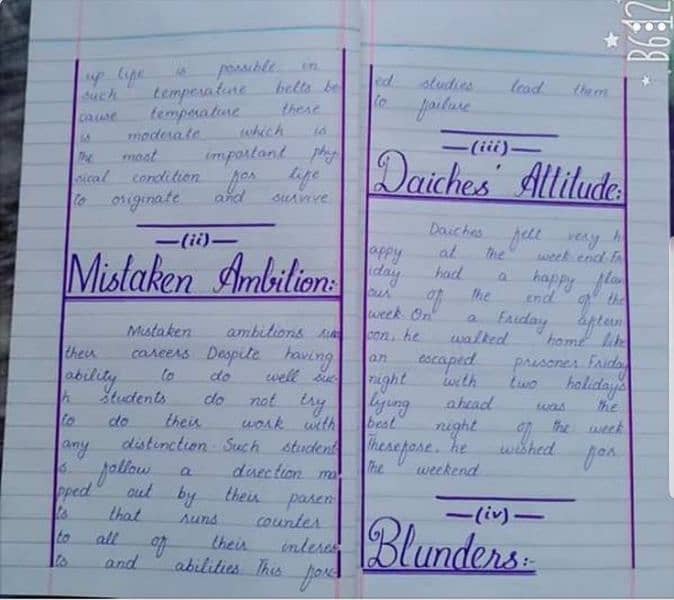 up life is possible in
such temperature belts be
cause temperature there
is moderate which is
the most important phy
sical condition for life
to originate and survive
—(ii)—
Mistaken Ambition:
Mistaken ambitions ruin
their careers Despite having
ability to do well suc
h students do not try
to do their work with
any distinction. Such student
s follow a direction ma
pped out by their paren
ts that runs counter
to all of their interes
ts and abilities This forc
ed studies lead them
to failure
—(iii)—
Daiches' Attitude:
Daiches felt very h
appy at the week end Fr
iday had a happy flav
our of the end of the
week. On a Friday aftern
oon, he walked home like
an escaped prisoner. Friday
night with two holidays
lyung ahead was the
best night of the week
Therefore, he wished for
the weekend
—(iv)—
Blunders:-
B612